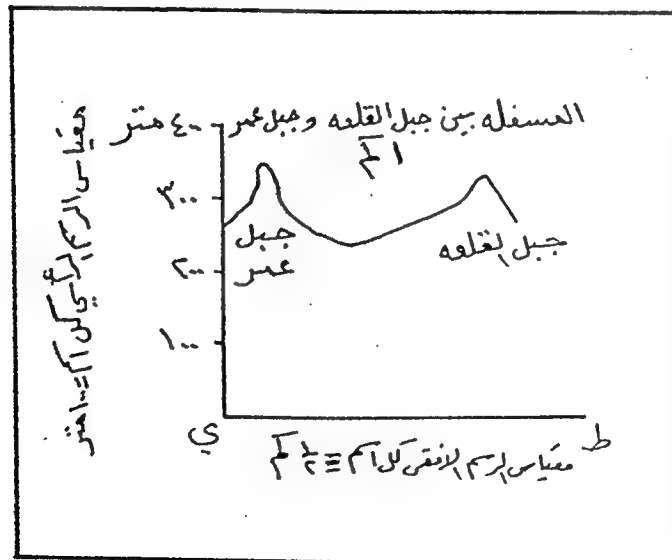 المسفله بين جبل القلعه وجبل عمر
١ كم
٤٠٠ متر
٣٠٠
٢٠٠
١٠٠
جبل
عمر
جبل القلعه
ي
ط
مقياس الرسم الافقي كل ١سم ≡ ١/٢ كم
مقياس الرسم الرأسي كل ١سم ≡ ١٠٠ متر